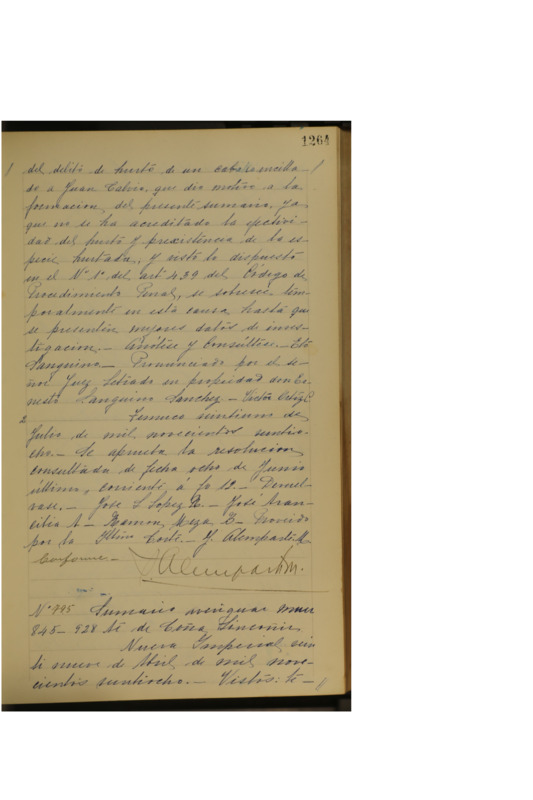 1264
del delito de hurto de un caballo ensilla
do a Juan Calvio, que dio motivo a la
formacion del presente sumario, ya
que no se ha acreditado la efectivi-
dad del hurto y preexistencia de la es-
pecie hurtada, y visto lo dispuesto
en el Nº 1º del art 439 del Código de
Procedimiento Penal, se sobresee tem-
poralmente en esta causa hasta que
se presenten mejores datos de inves-
tigacion.— Anótese y Consúltese.— Esto
Sanguino— Pronunciado por el se-
ñor Juez Letrado en propiedad don Er-
nesto Sanguino Sanchez — Victor Ortiz
2 Temuco veintiuno de
Julio de mil novecientos veintio-
cho.— Se aprueba la resolucion
consultada de fecha ocho de Junio
último, corriente á fs 12.— Devuel-
vase.— Jose S Lopez R.— José Aran-
cibia A— Ramon Meza R— Proveido
por la Iltma Corte.— J. Alempart M.
Conforme.— J Alempart M.
Nº 795 Sumario averiguar muer
845-928 te de Coña Lincoñir
Nueva Imperial vein
ti nueve de Abril de mil nove-
cientos veintiocho.— Vistos: te—